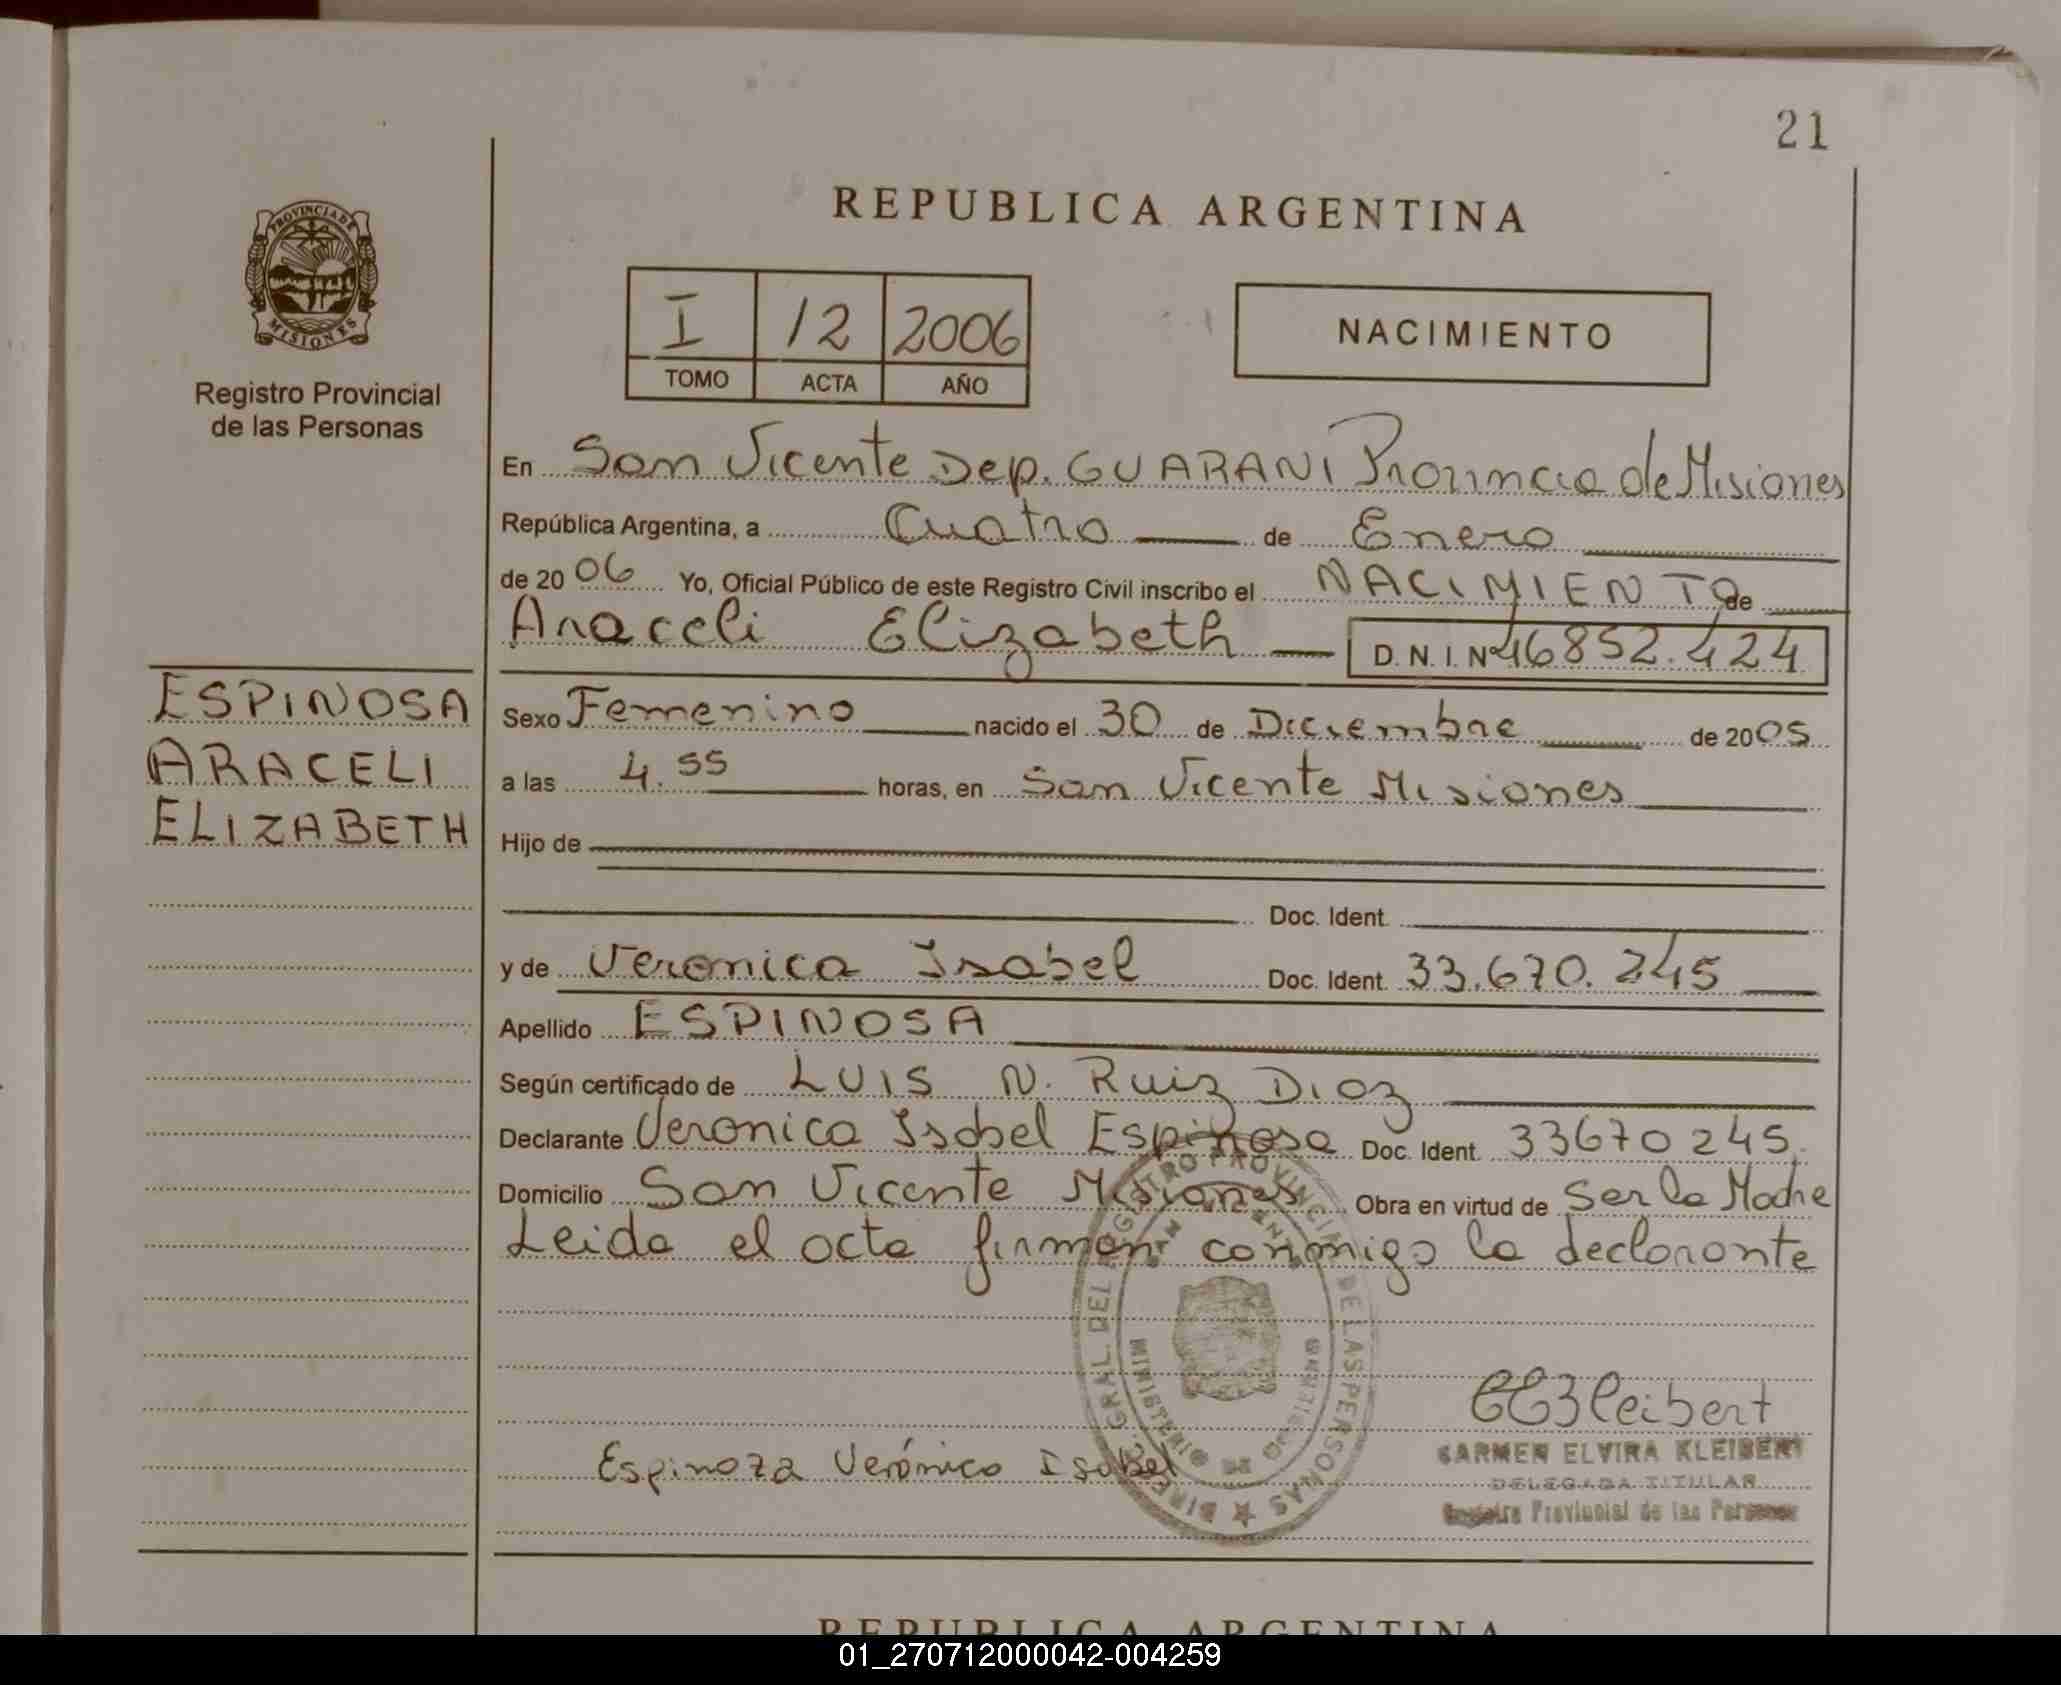 21
PROVINCIA DE
MISIONES
Registro Provincial
de las Personas
REPUBLICA ARGENTINA
I 12 2006
TOMO ACTA AÑO
NACIMIENTO
En San Vicente Dep. GUARANI Provincia de Misiones
República Argentina, a Cuatro de Enero
de 2006 Yo, Oficial Público de este Registro Civil inscribo el NACIMIENTO de
Araceli Elizabeth D.N.I. Nº 46852.424
ESPINOSA
ARACELI
ELIZABETH
Sexo Femenino nacido el 30 de Diciembre de 2005
a las 4.55 horas, en San Vicente Misiones
Hijo de
Doc. Ident.
y de Veronica Isabel Doc. Ident. 33.670.245
Apellido ESPINOSA
Según certificado de LUIS N. Ruiz Diaz
Declarante Veronica Isabel Espinosa Doc. Ident. 33670245
Domicilio San Vicente Misiones Obra en virtud de Ser la Madre
Leida el acta firman conmigo la declarante
DIREC. GRAL. DEL REGISTRO PROVINCIAL DE LAS PERSONAS
SAN VICENTE
MINISTERIO DE GOBIERNO
Espinoza Verónica Isabel
CEKleibert
CARMEN ELVIRA KLEIBERT
DELEGADA TITULAR
Registro Provincial de las Personas
REPUBLICA ARGENTINA
01_270712000042-004259